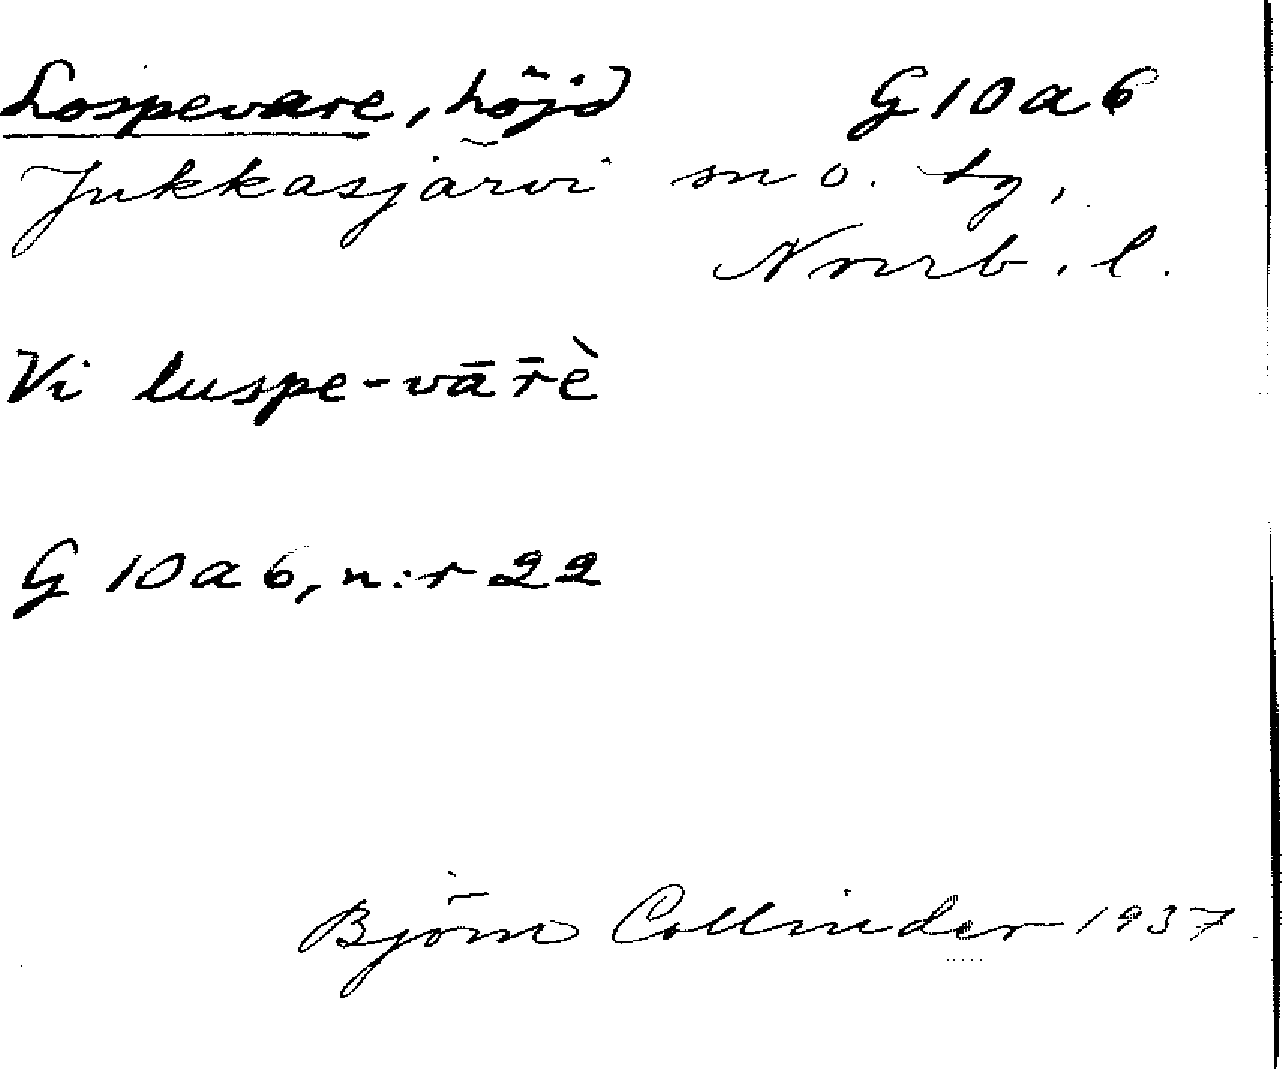 Lospevare, höjd G 10 a 6
Jukkasjärvi sn o. tg,
Norrb. l.
Vi luspe-vā r̄è
G 10 a 6, n:r 22
Björn Collinder 1937